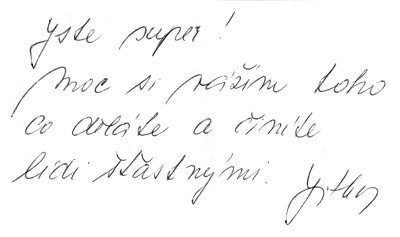 Jste super!
moc si vážím toho
co děláte a činíte
lidi šťastnými.
Jitka